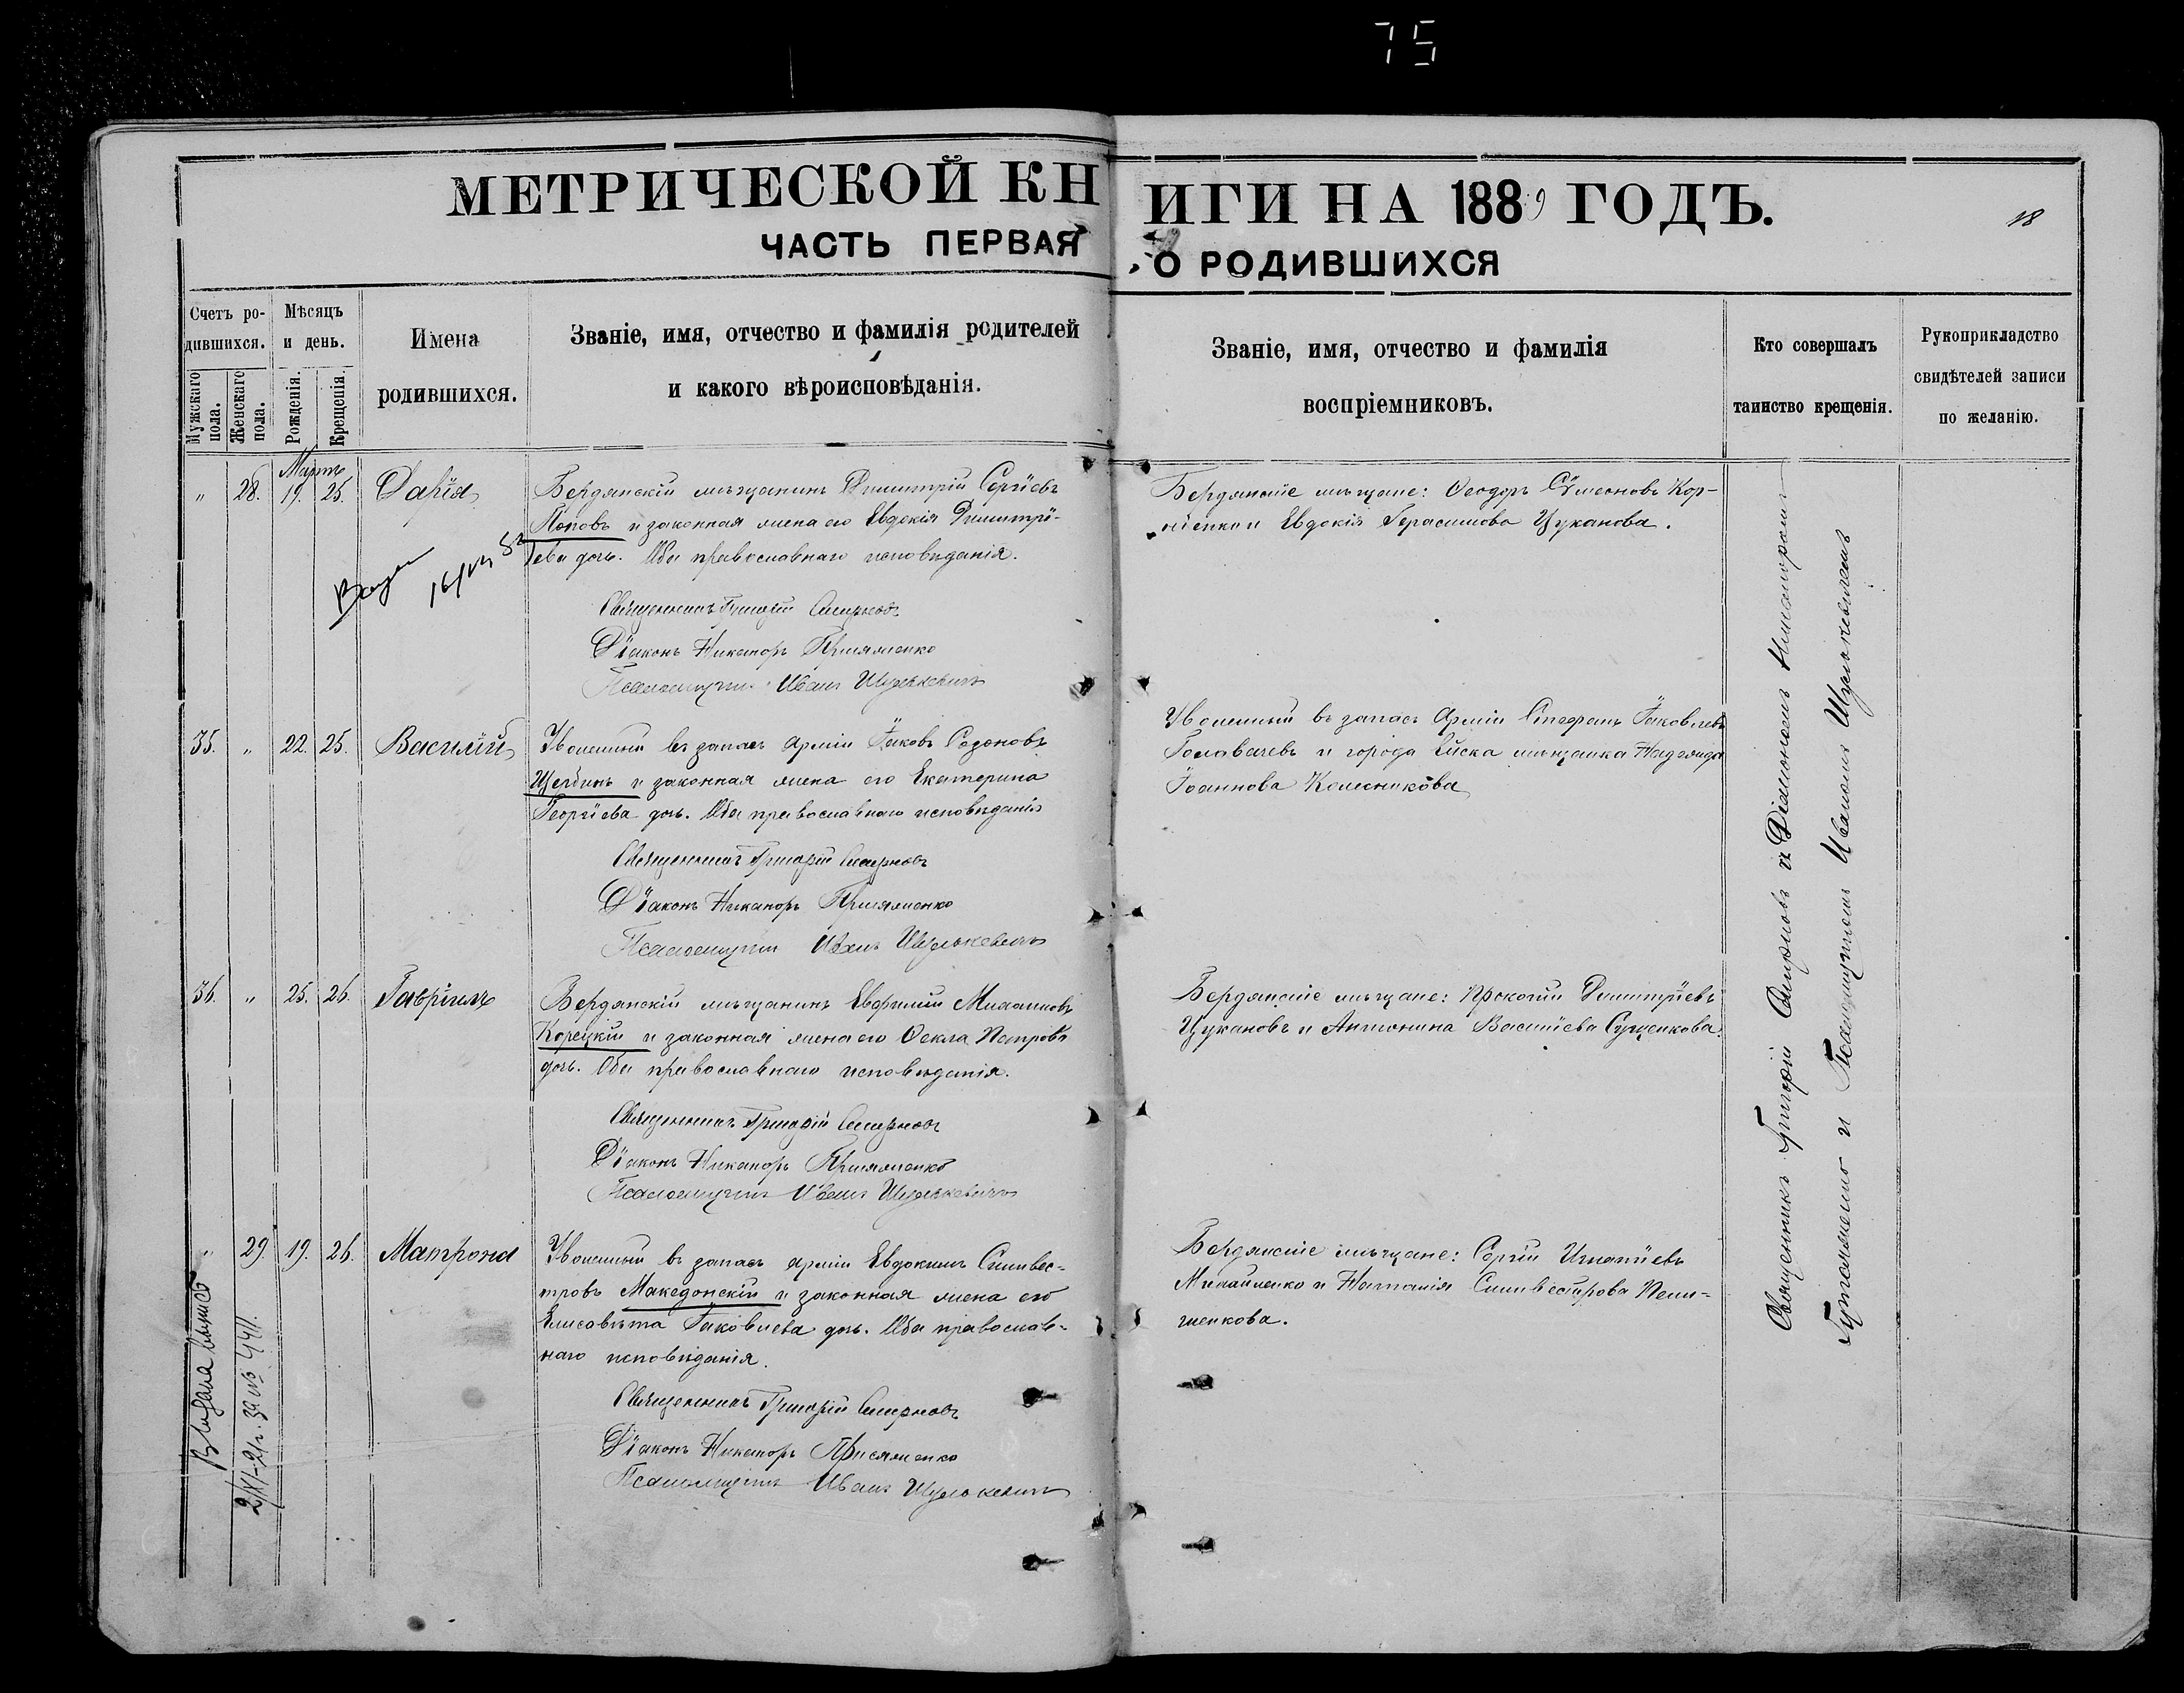 75
МЕТРИЧЕСКОЙ КНИГИ НА 1889 ГОДЪ.
18
ЧАСТЬ ПЕРВАЯ, О РОДИВШИХСЯ
Счетъ ро-
дившихся.
Мужскаго пола.
Женскаго пола.
Мѣсяцъ
и день.
Рожденія.
Крещенія.
Имена
родившихся.
Званіе, имя, отчество и фамилія родителей
и какого вѣроисповѣданія.
Званіе, имя, отчество и фамилія
воспріемниковъ.
Кто совершалъ
таинство крещенія.
Рукоприкладство
свидѣтелей записи
по желанію.
Мартъ
" 28. 19. 25. Дарія
Бердянскій мѣщанинъ Димитрій Сергіевъ
Поповъ и законная жена его Евдокія Димитрі-
ева дочь. Оба православнаго исповѣданія.
Священникъ Григорій Смирновъ
Діаконъ Никаноръ Гутяженко
Псаломщикъ Иванъ Шулькевичъ
Бердянскіе мѣщане: Ѳеодоръ Сѵмеоновъ Кор-
ніенко и Евдокія Герасимова Цуканова.
35. " 22. 25. Василій
Уволенный въ запасъ арміи Іаковъ Созоновъ
Щербинъ и законная жена его Екатерина
Георгіева дочь. Оба православнаго исповѣданія
Священникъ Григорій Смирновъ
Діаконъ Никаноръ
Псаломщикъ Иванъ Шулькевичъ
Уволенный въ запасъ Арміи Стефанъ Іаковлевъ
Головачевъ и города Ейска мѣщанка Надежда
Іоаннова Колесникова
36. " 25. 26. Гавріилъ
Бердянскій мѣщанинъ Евфимій Михаиловъ
Корецкій и законная жена его Ѳекла Петрова
дочь. Оба православнаго исповѣданія.
Священникъ Григорій Смирновъ
Діаконъ Никаноръ
Псаломщикъ Иванъ Шулькевичъ
Бердянскіе мѣщане: Прокопій Димитріевъ
Цукановъ и Антонина Василіева Сущенкова.
" 29. 19. 26. Матрона
Уволенный въ запасъ арміи Евдокимъ Сильвес-
тровъ Македонскій и законная жена его
Елисавета Іаковлева дочь. Оба православ-
наго исповѣданія.
Священникъ Григорій Смирновъ
Діаконъ Никаноръ
Псаломщикъ Иванъ Шулькевичъ
Бердянскіе мѣщане: Сергій Игнатіевъ
Михайленко и Наталія Сильвестрова
Священникъ Григорій Смирновъ и Діаконъ
и Псаломщикомъ Иваномъ Шулькевичемъ
Выдана выпись